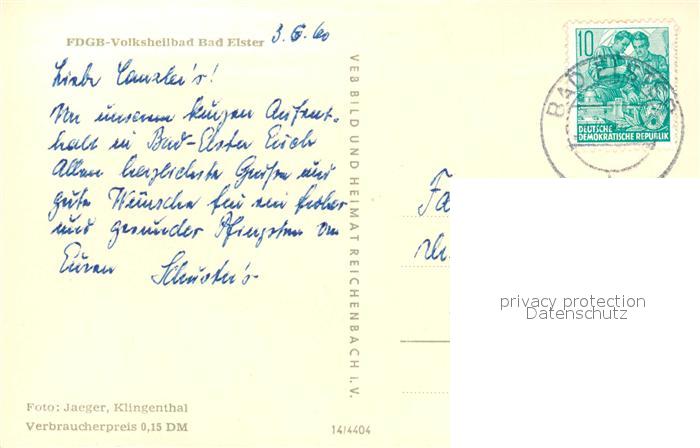 FDGB-Volksheilbad Bad Elster
3.6.60
Liebe Canzler's!
Von unserem kurzen Aufent-
halt in Bad-Elster Euch
Allen herzlichste Grüße und
gute Wünsche für ein frohes
und gesundes Pfingsten von
Euren Schuster's
VEB BILD UND HEIMAT REICHENBACH i.V.
10
DEUTSCHE
DEMOKRATISCHE REPUBLIK
BAD ELSTER
Fa
privacy protection
Datenschutz
Foto: Jaeger, Klingenthal
Verbraucherpreis 0,15 DM
14/4404